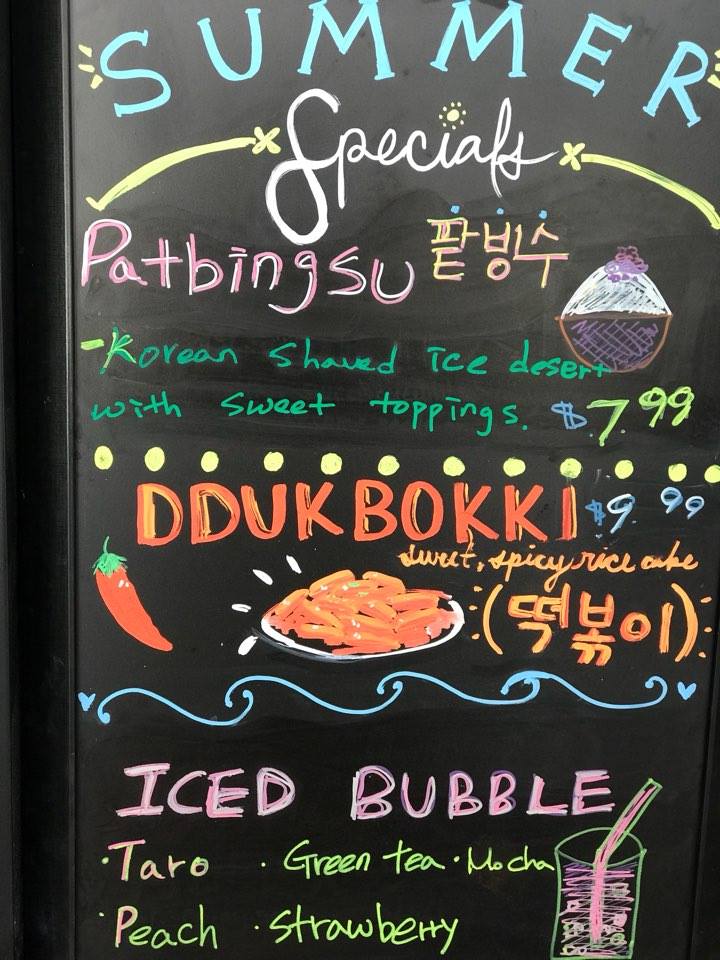 SUMMER
Specials
Patbingsu 팥빙수
-Korean shaved ice desert
with sweet toppings. $7.99
DDUKBOKKI $9.99
sweet, spicy rice cake
(떡볶이)
ICED BUBBLE
·Taro ·Green tea ·Mocha
·Peach ·Strawberry